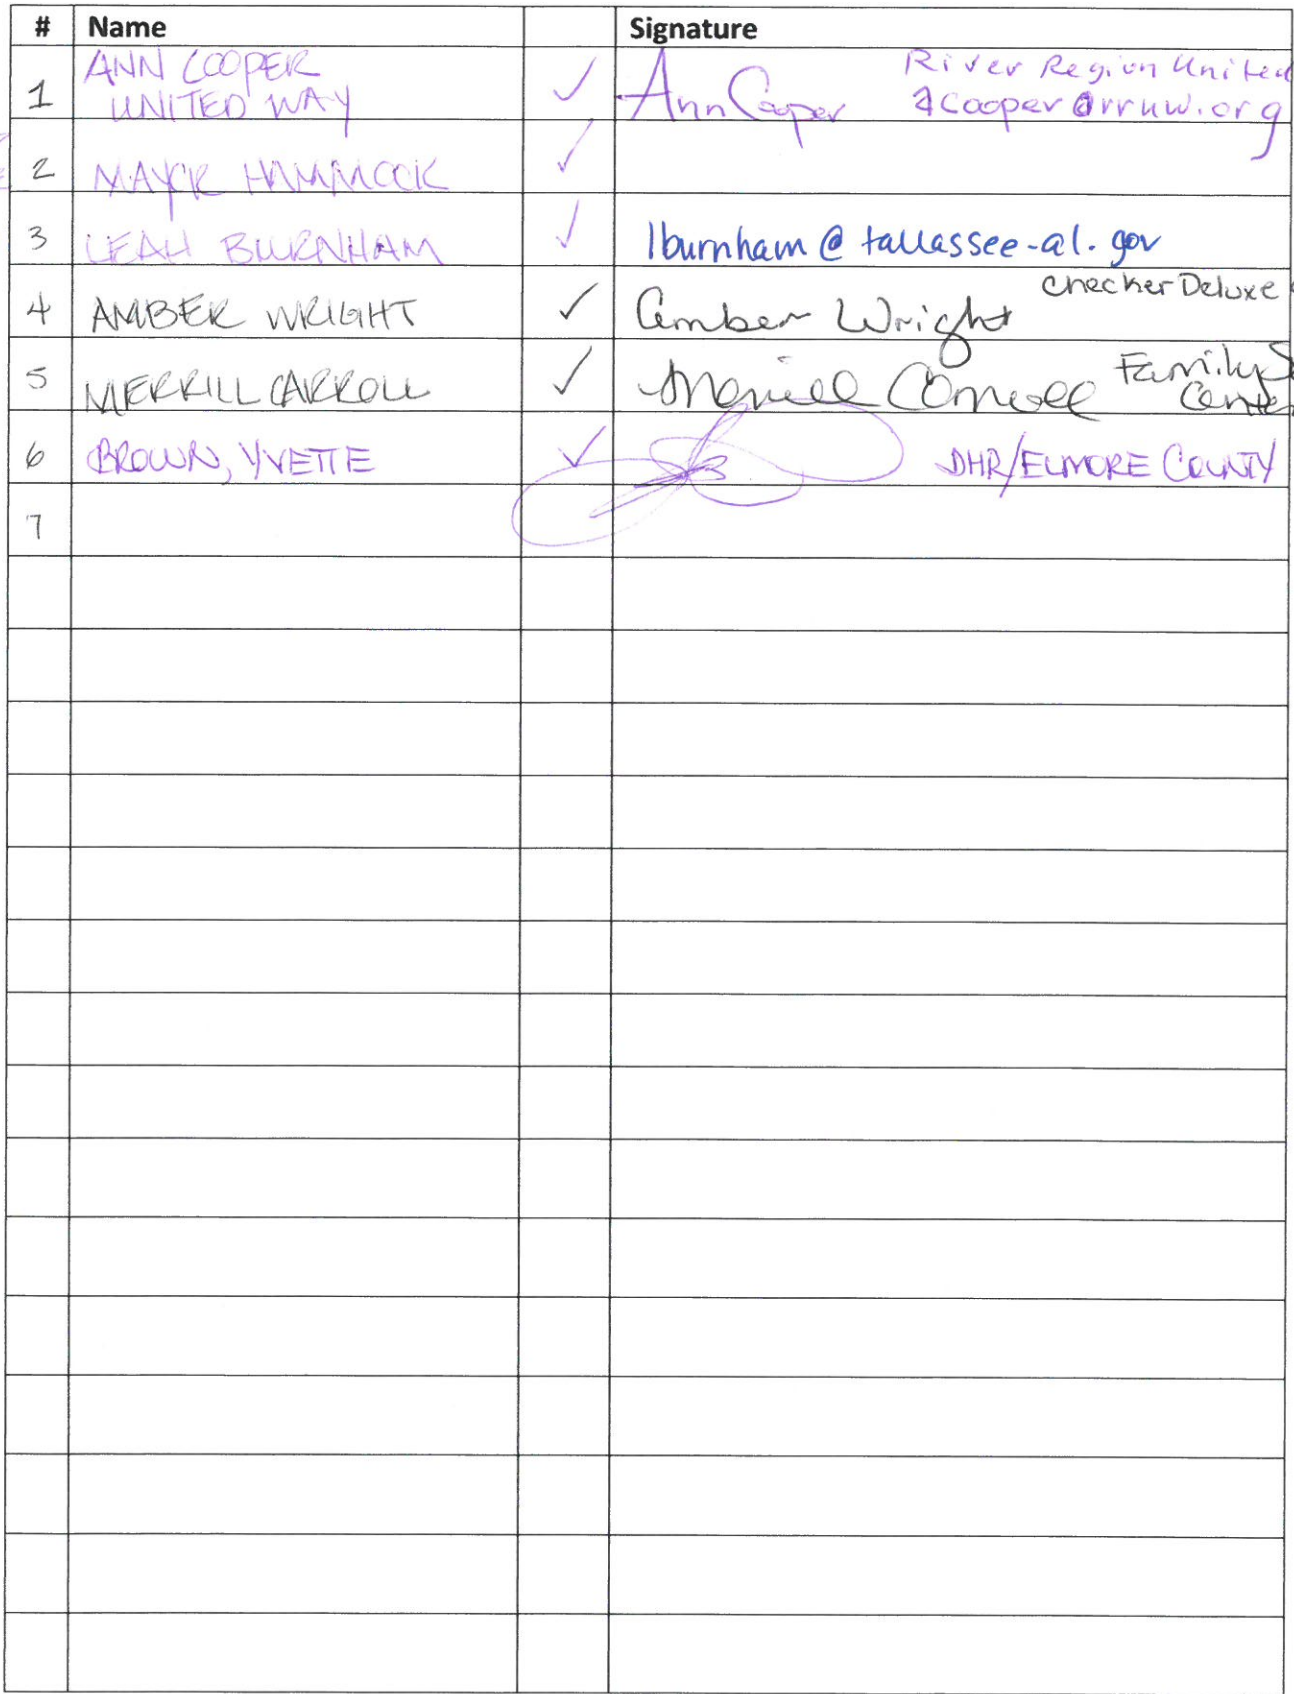 # Name Signature
1 ANN COOPER UNITED WAY ✓ Ann Cooper River Region United acooper@rruw.org
2 MAYOR HAMMOCK ✓
3 LEAH BURNHAM ✓ lburnham@tallassee-al.gov
4 AMBER WRIGHT ✓ Amber Wright checker Deluxe
5 MERRILL CARROLL ✓ Merrill Carroll Family Center
6 BROWN, YVETTE ✓ DHR/ELMORE COUNTY
7